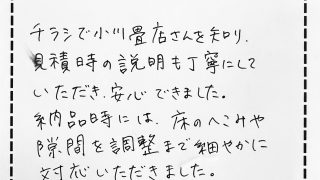 チラシで小川畳店さんを知り、
見積時の説明も丁寧にして
いただき、安心できました。
納品時には、床のへこみや
隙間を調整まで細やかに
対応いただきました。